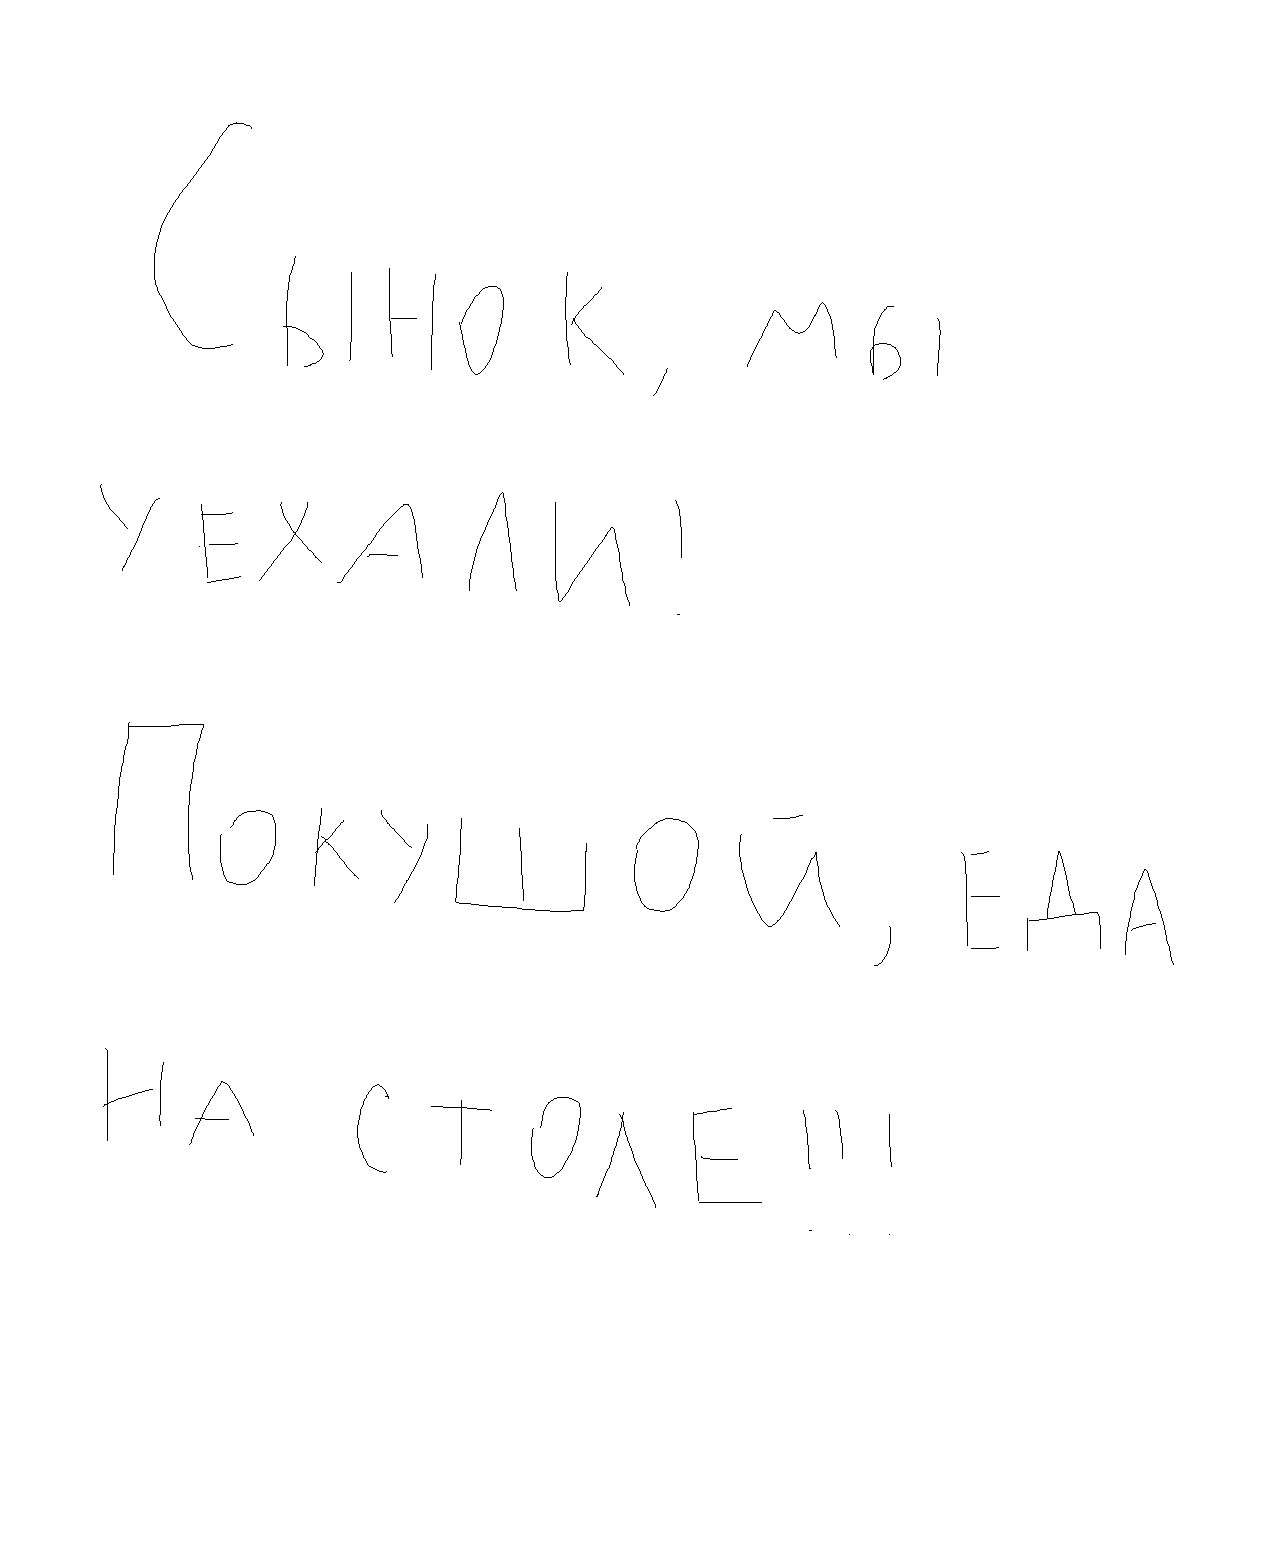 Сынок, мы
уехали!
Покушой, еда
на столе!!!